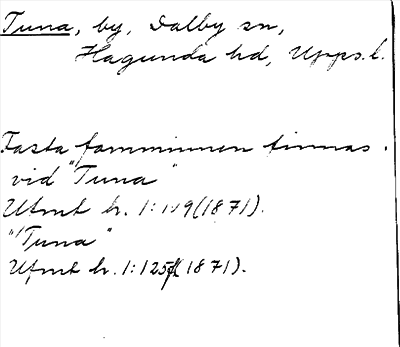 Tuna, by, Dalby sn,
Hagunda hd, Upps. l.
Fasta fornminnen finnas
vid "Tuna"
Ufmt h. 1: (1871).
"Tuna"
Ufmt h. 1: 125 (1871).